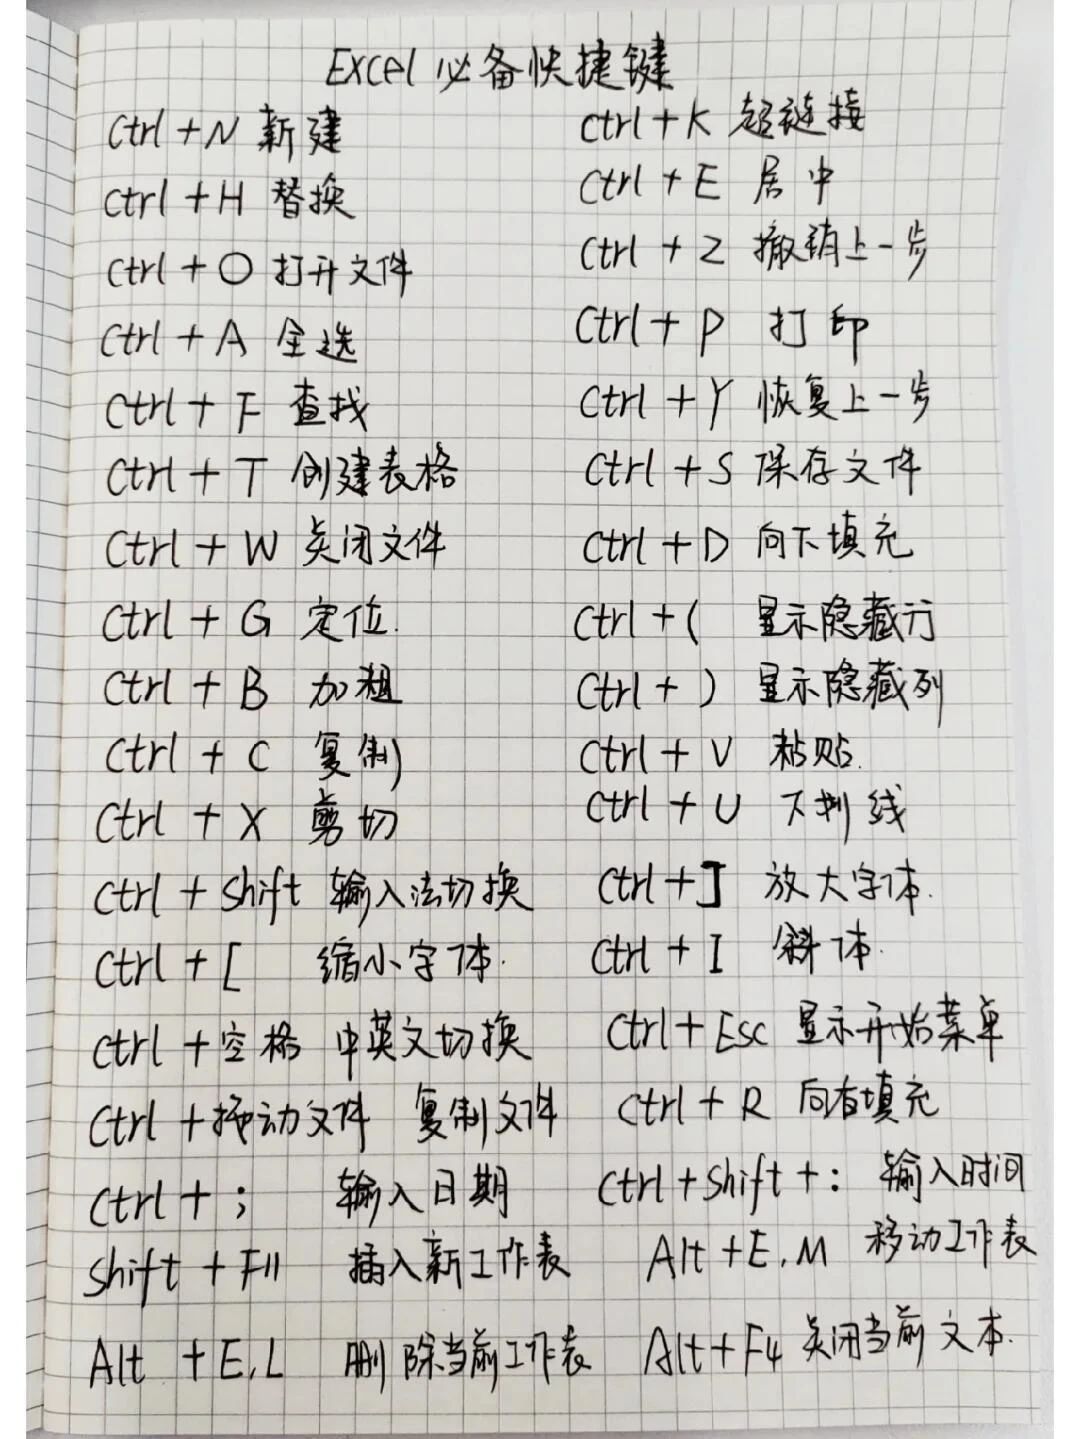 Excel 必备快捷键
Ctrl + N 新建
Ctrl + K 超链接
Ctrl + H 替换
Ctrl + E 居中
Ctrl + O 打开文件
Ctrl + Z 撤销上一步
Ctrl + A 全选
Ctrl + P 打印
Ctrl + F 查找
Ctrl + Y 恢复上一步
Ctrl + T 创建表格
Ctrl + S 保存文件
Ctrl + W 关闭文件
Ctrl + D 向下填充
Ctrl + G 定位.
Ctrl + ( 显示隐藏行
Ctrl + B 加粗
Ctrl + ) 显示隐藏列
Ctrl + C 复制
Ctrl + V 粘贴.
Ctrl + X 剪切
Ctrl + U 下划线
Ctrl + Shift 输入法切换
Ctrl + ] 放大字体.
Ctrl + [ 缩小字体.
Ctrl + I 斜体.
Ctrl + 空格 中英文切换
Ctrl + Esc 显示开始菜单
Ctrl + 拖动文件 复制文件
Ctrl + R 向右填充
Ctrl + ; 输入日期
Ctrl + Shift + : 输入时间
Shift + F11 插入新工作表
Alt + E, M 移动工作表
Alt + E, L 删除当前工作表
Alt + F4 关闭当前文本.